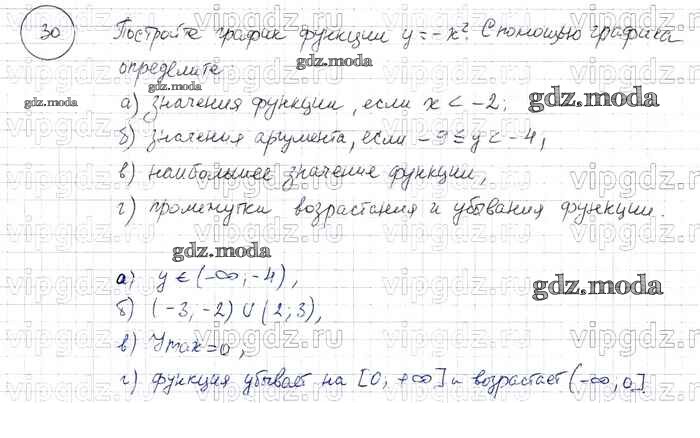 30
Постройте график функции y = -x². С помощью графика
определите:
gdz.moda
gdz.moda
gdz.moda
а) значения функции, если x < -2;
gdz.moda
б) значения аргумента, если -9 ≤ y < -4;
в) наибольшее значение функции;
г) промежутки возрастания и убывания функции.
gdz.moda
а) y ∈ (-∞; -4),
gdz.moda
б) (-3; -2) ∪ (2; 3),
в) Ymax = 0,
г) функция убывает на [0; +∞] и возрастает (-∞; 0]
vipgdz.ru vipgdz.ru vipgdz.ru